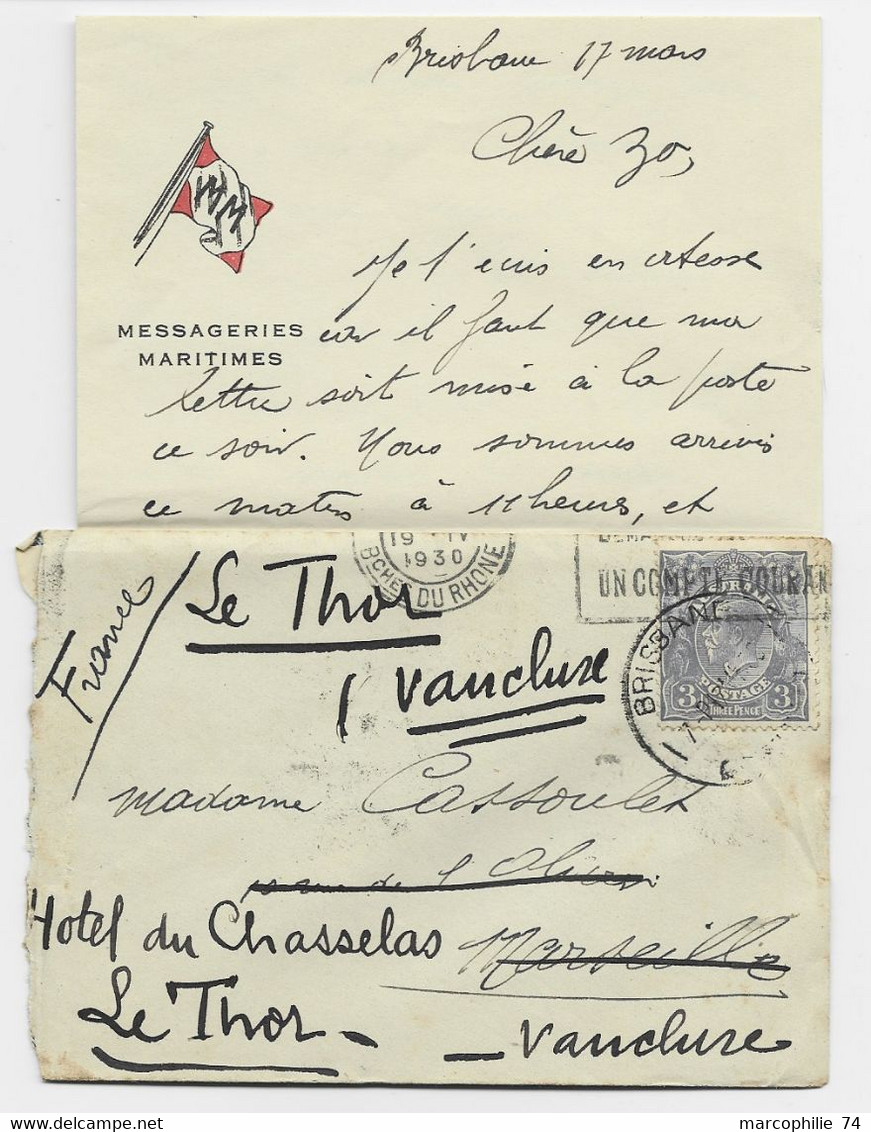 Brisbane 17 mars
Chère Zo,
MM
Je t'écris en vitesse
MESSAGERIES
MARITIMES
car il faut que ma
lettre soit mise à la poste
ce soir. Nous sommes arrivés
ce matin à 11 heures, et
19 IV
1930
BCHES DU RHONE
UN COMPTE COURAN
France
Le Thor
Vaucluse
BRISBANE
POSTAGE
3 3
THREE PENCE
madame Cassoulet
rue de l'Olivier
Marseille
Hotel du Chasselas
Le Thor - - Vaucluse
marcophilie 74